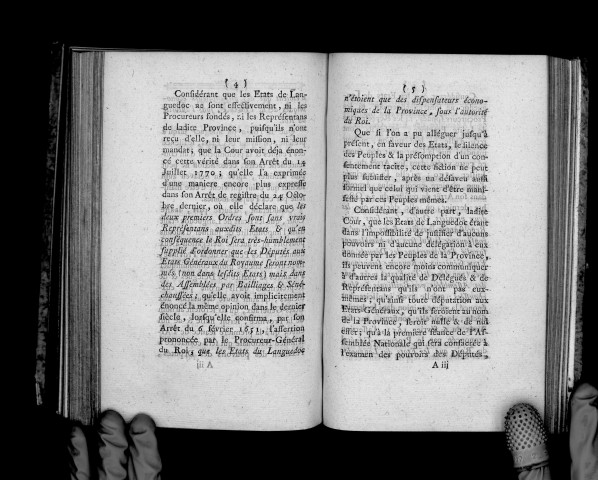 ( 4 )
Considérant que les Etats de Lan-
guedoc ne sont effectivement, ni les
Procureurs fondés, ni les Représentans
de ladite Province, puisqu'ils n'ont
reçu d'elle, ni leur mission, ni leur
mandat; que la Cour avoit déja énon-
cé cette vérité dans son Arrêt du 14
Juillet 1770; qu'elle l'a exprimée
d'une maniere encore plus expresse
dans son Arrêt de registre du 24 Octo-
bre dernier, où elle déclare que les
deux premiers Ordres sont sans vrais
Représentans auxdits Etats & qu'en
conséquence le Roi sera très-humblement
supplié d'ordonner que les Députés aux
Etats Généraux du Royaume seront nom-
més, (non dans lesdits Etats) mais dans
des Assemblées par Bailliages & Séné-
chaussées; qu'elle avoit implicitement
énoncé la même opinion dans le dernier
siècle, lorsqu'elle confirma, par son
Arrêt du 6 février 1651, l'assertion
prononcée par le Procureur-Général
du Roi, que les Etats du Languedoc
( 5 )
n'étoient que des dispensateurs écono-
miques de la Province, sous l'autorité
du Roi.
Que si l'on a pu alléguer jusqu'à
présent, en faveur des Etats, le silence
des Peuples & la présomption d'un con-
sentement tacite, cette fiction ne peut
plus subsister, après un désaveu aussi
formel que celui qui vient d'être mani-
festé par ces Peuples mêmes.
Considérant, d'autre part, ladite
Cour, que les Etats de Languedoc étant
dans l'impossibilité de justifier d'aucuns
pouvoirs ni d'aucune délégation à eux
donnée par les Peuples de la Province,
ils peuvent encore moins communiquer
à d'autres la qualité de Délégués & de
Représentans qu'ils n'ont pas eux-
mêmes; qu'ainsi toute députation aux
Etats-Généraux, qu'ils feroient au nom
de la Province, seroit nulle & de nul
effet; qu'à la première séance de l'As-
semblée Nationale qui sera consacrée à
l'examen des pouvoirs des Députés,
A iij